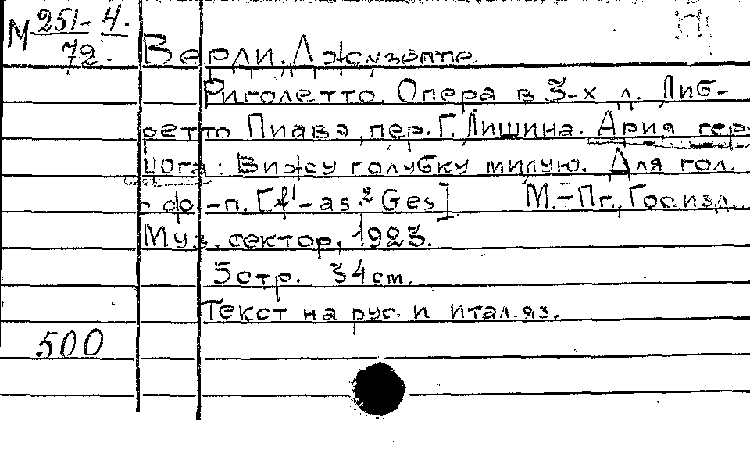 М 251-4.
72.
Верди, Джузеппе.
Риголетто. Опера в 3-х д. Либ-
ретто Пиавэ, пер. Г. Лишина. Ария гер-
цога: Вижу голубку милую. Для гол.
с ф.-п. [f¹-as² Ges] М.-Пг., Госизд.,
Муз. сектор, 1923.
5 стр. 34 см.
Текст на рус. и итал. яз.
500